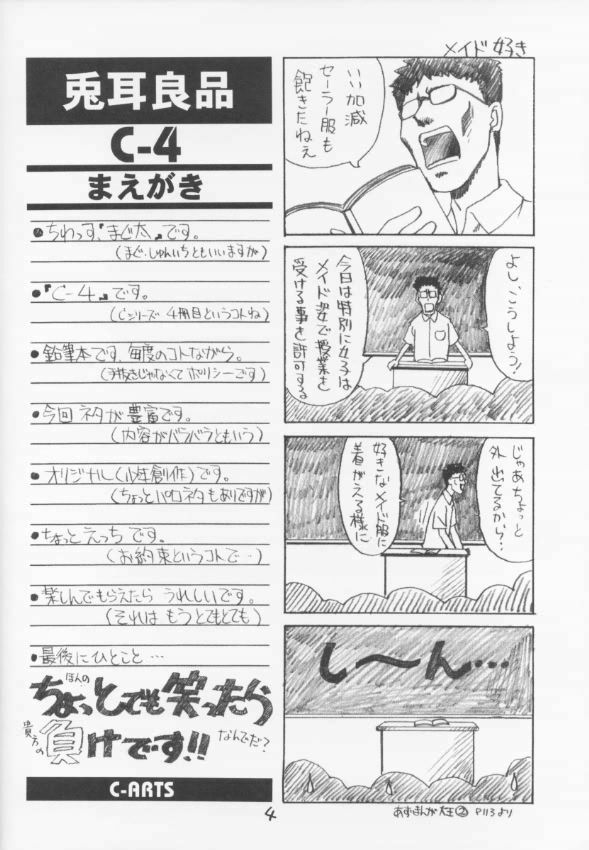 兎耳良品
C-4
まえがき
●ちわっす、『まぐ太』です。
(まぐ・じゅんいちともいいますが)
●『C-4』です。
(Cシリーズ 4冊目というコトね)
●鉛筆本です。毎度のコトながら。
(手抜きじゃなくてポリシーです)
●今回ネタが豊富です。
(内容がバラバラともいう)
●オリジナル(少年創作)です。
(ちょっとパロネタもありですが)
●ちょっとえっちです。
(お約束というコトで…)
●楽しんでもらえたら うれしいです。
(それは もう とてもとても)
●最後にひとこと…
ほんの
ちょっとでも笑ったら
貴方の
負けです!!
なんでだ?
C-ARTS
メイド好き
いい加減
セーラー服も
飽きたねえ
よし、こうしよう!
今日は特別に女子は
メイド姿で授業を
受ける事を許可する
じゃあちょっと
外出てるから…
好きなメイド服に
着がえる様に
し〜ん…
あずまんが大王② P113より
4